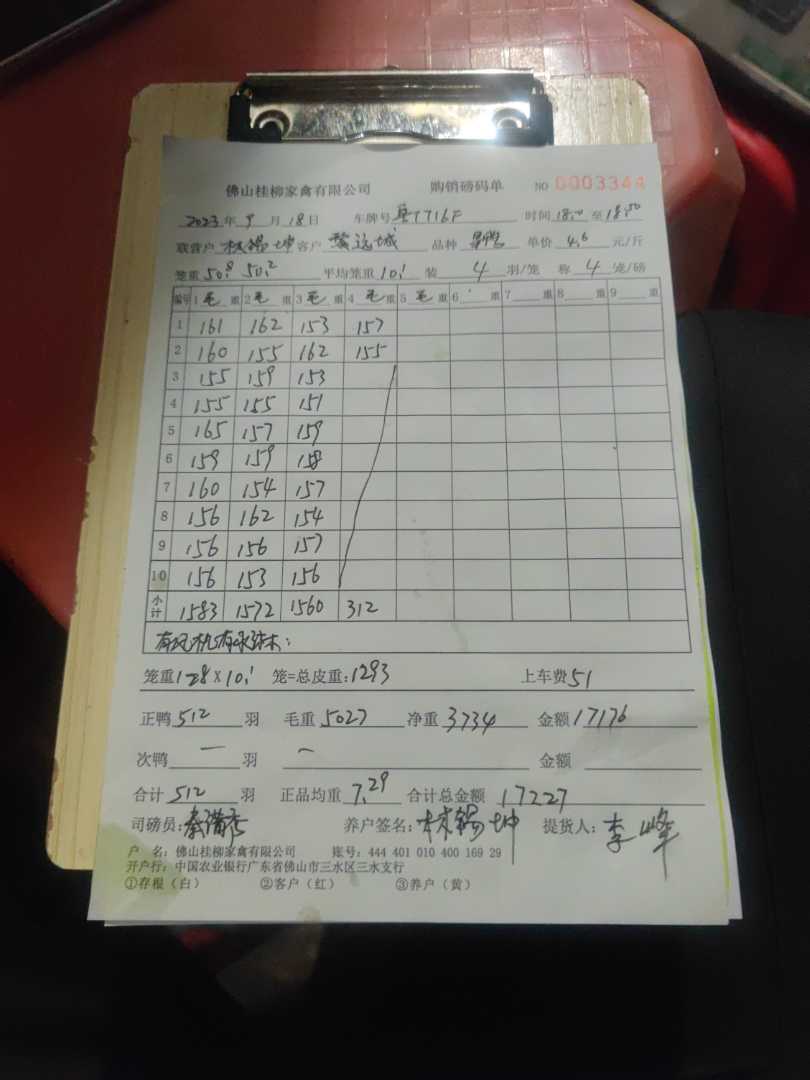 佛山桂柳家禽有限公司 购销磅码单 NO 0003344
2023年9月18日 车牌号 T1716F 时间 18:20 至 18:50
联营户 林锡坤 客户 城 品种 单价 4.6 元/斤
笼重 50.8 50.2 平均笼重 10.1 装 4 羽/笼 称 4 笼/磅
编号 1 毛 重 2 毛 重 3 毛 重 4 毛 重 5 毛 重 6 重 7 重 8 重 9 重
1 161 162 153 157
2 160 155 162 155
3 155 159 153
4 155 155 151
5 165 157 159
6 159 159 158
7 160 154 157
8 156 162 154
9 156 156 157
10 156 153 156
小计 1583 1572 1560 312
笼重 128 X 10.1 笼=总皮重: 1293 上车费 51
正鸭 512 羽 毛重 5027 净重 3734 金额 17176
次鸭 — 羽 — 金额
合计 512 羽 正品均重 7.29 合计总金额 17227
司磅员: 养户签名: 林锡坤 提货人: 李峰
户 名: 佛山桂柳家禽有限公司 账号: 444 401 010 400 169 29
开户行: 中国农业银行广东省佛山市三水区三水支行
①存根(白) ②客户(红) ③养户(黄)